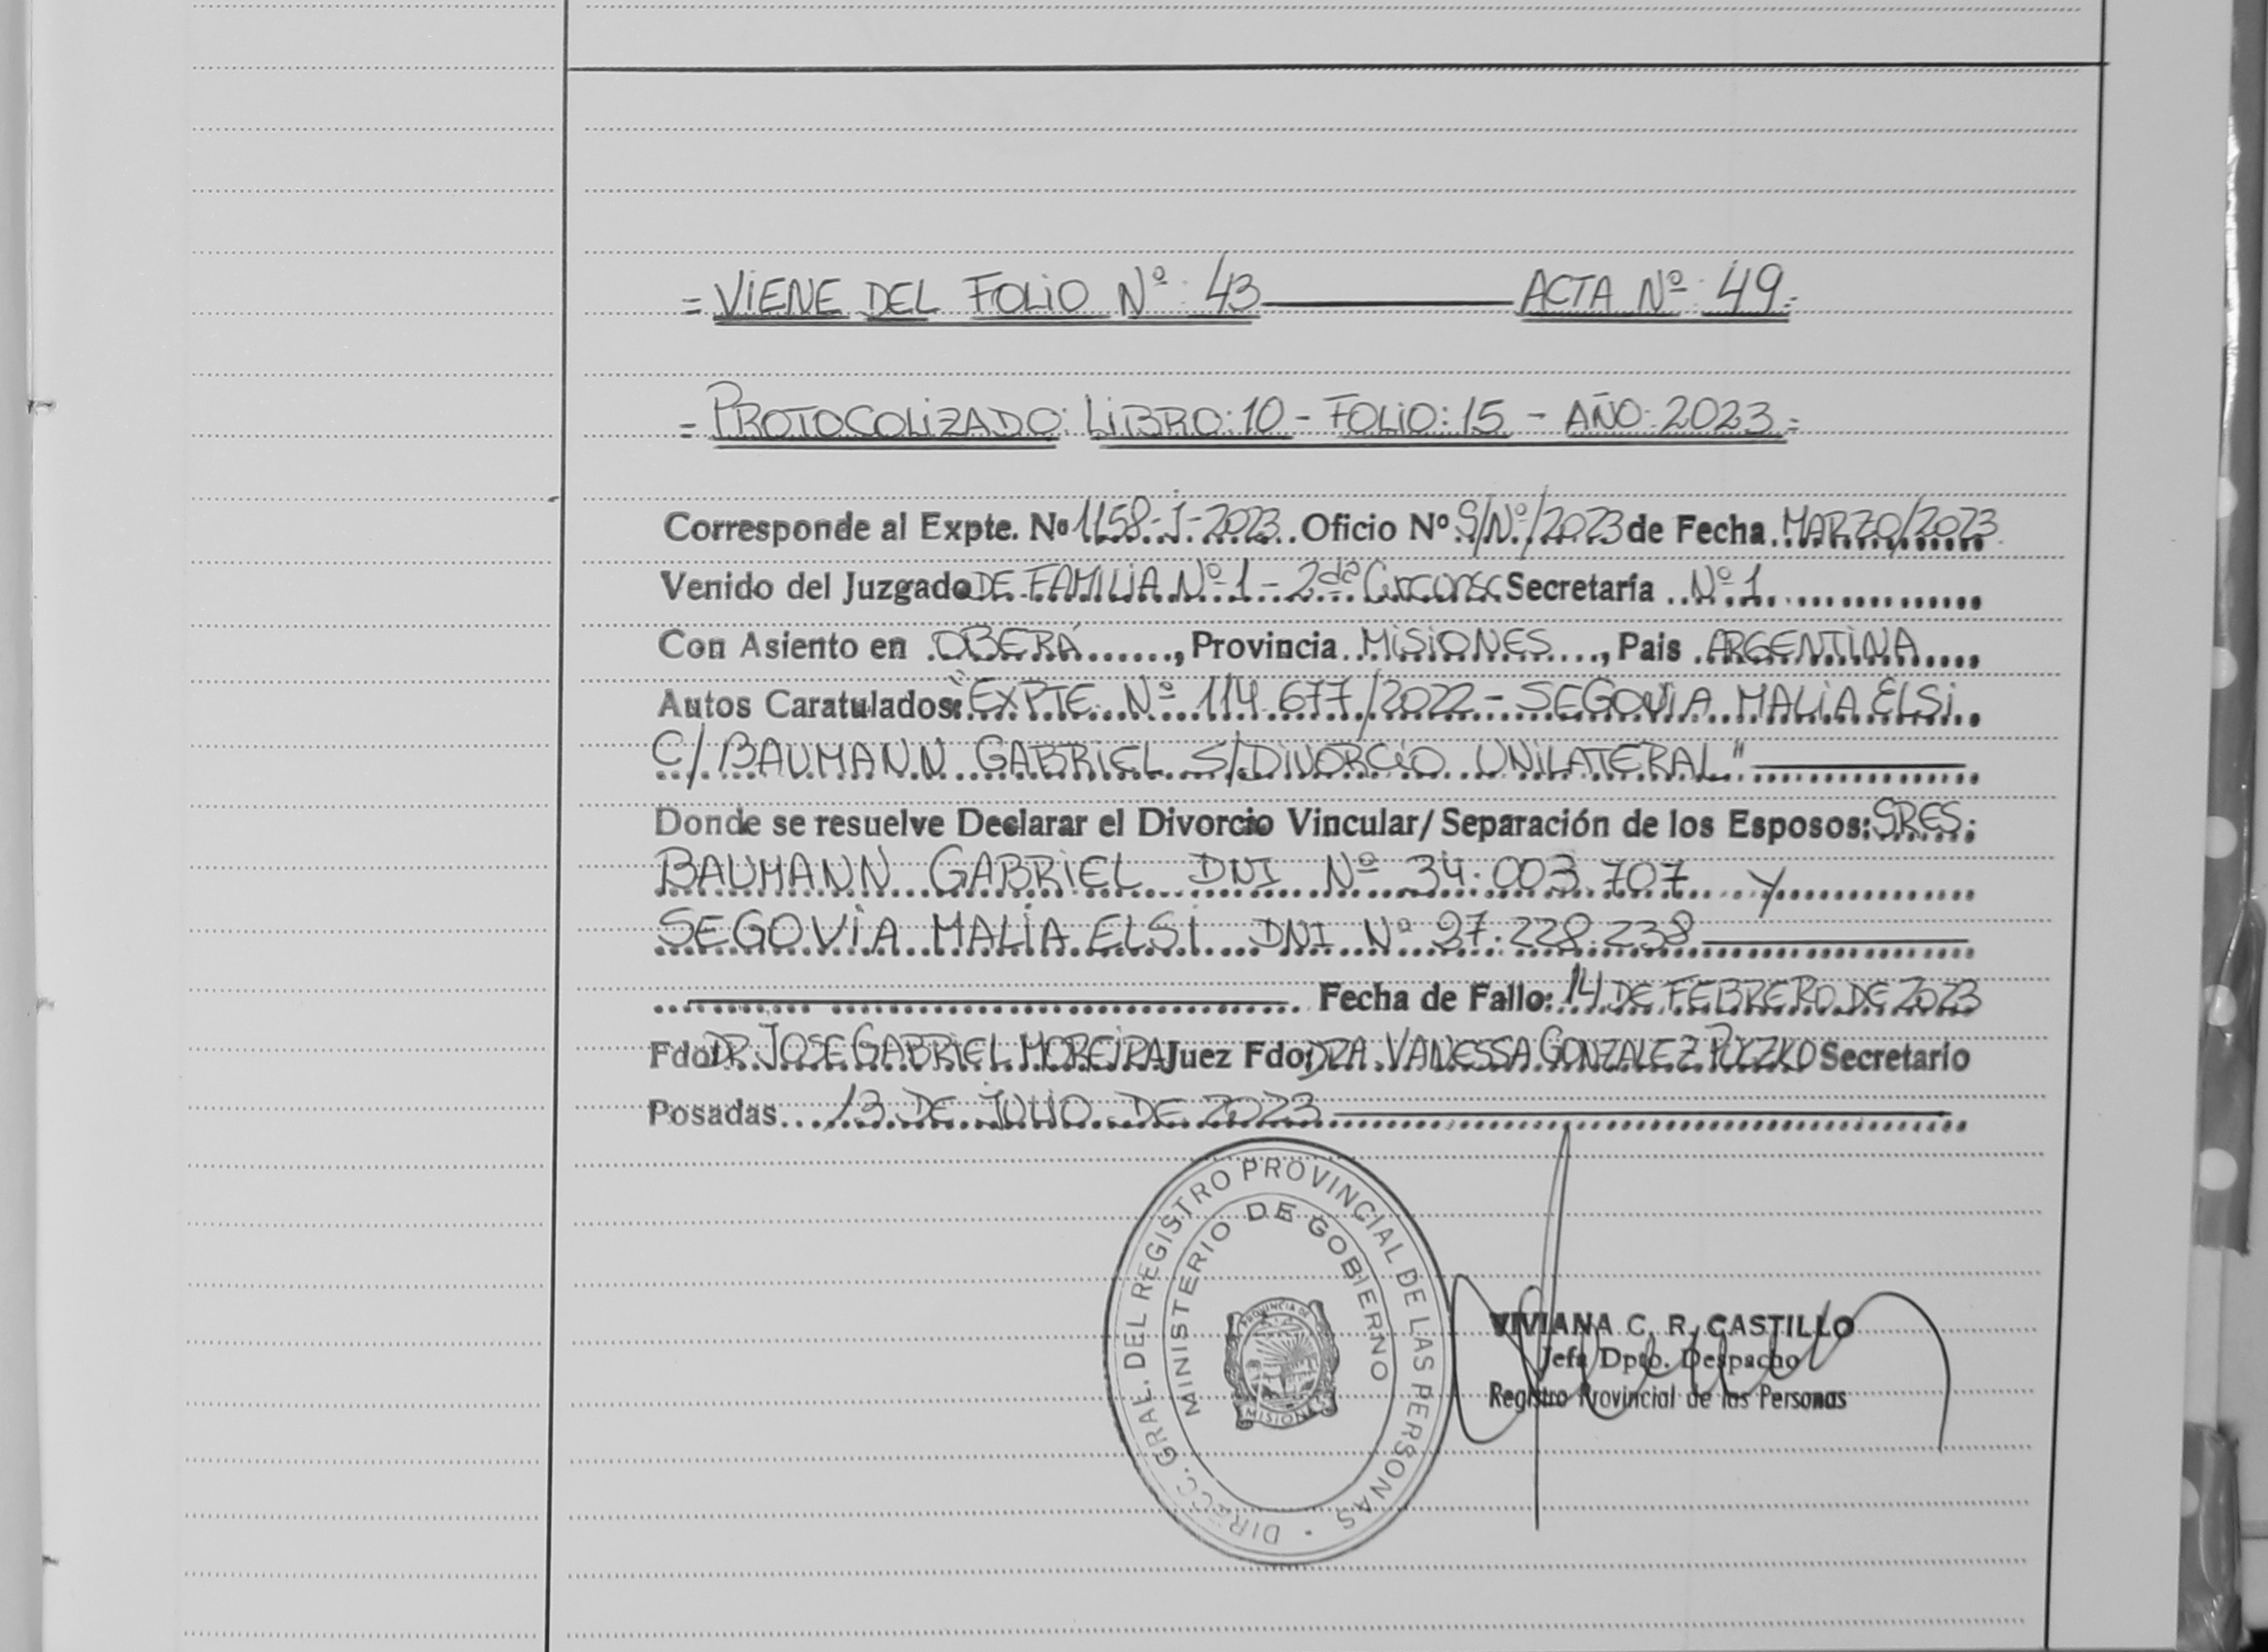 = VIENE DEL FOLIO Nº: 43 ACTA Nº: 49=
= PROTOCOLIZADO: LIBRO: 10 - FOLIO: 15 - AÑO: 2023=
Corresponde al Expte. Nº 1158-J-2023. Oficio Nº S/Nº/2023 de Fecha MARZO/2023
Venido del Juzgado DE FAMILIA Nº 1 - 2da Circunsc Secretaría Nº 1
Con Asiento en OBERÁ, Provincia MISIONES, Pais ARGENTINA
Autos Caratulados: "EXPTE Nº 114.677/2022 - SEGOVIA MALIA ELSI
C/ BAUMANN GABRIEL S/DIVORCIO UNILATERAL"
Donde se resuelve Declarar el Divorcio Vincular/Separación de los Esposos: SRES.
BAUMANN GABRIEL DNI Nº 34.003.707 Y
SEGOVIA MALIA ELSI DNI Nº 37.228.238
Fecha de Fallo: 14 DE FEBRERO DE 2023
Fdo: DR. JOSE GABRIEL MOREIRA Juez Fdo: DRA. VANESSA GONZALEZ Secretario
Posadas 13 DE JULIO DE 2023
DIRECC. GRAL. DEL REGISTRO PROVINCIAL DE LAS PERSONAS
MINISTERIO DE GOBIERNO
PROVINCIA DE
MISIONES
VIVIANA C. R. CASTILLO
Jefa Dpto. Despacho
Registro Provincial de las Personas